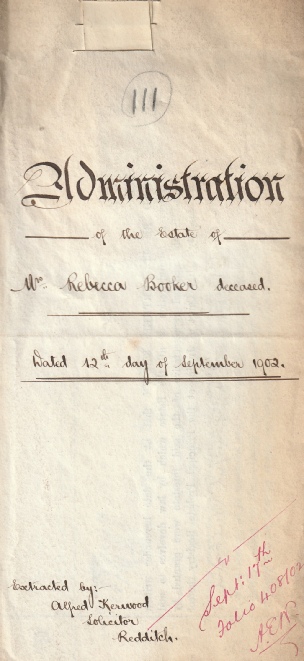 111
Administration
of the Estate of
Mrs. Rebecca Booker deceased.
Dated 12th day of September 1902.
Extracted by:-
Alfred Kerwood
Solicitor
Redditch.
Sept: 17th
Folio 408/02